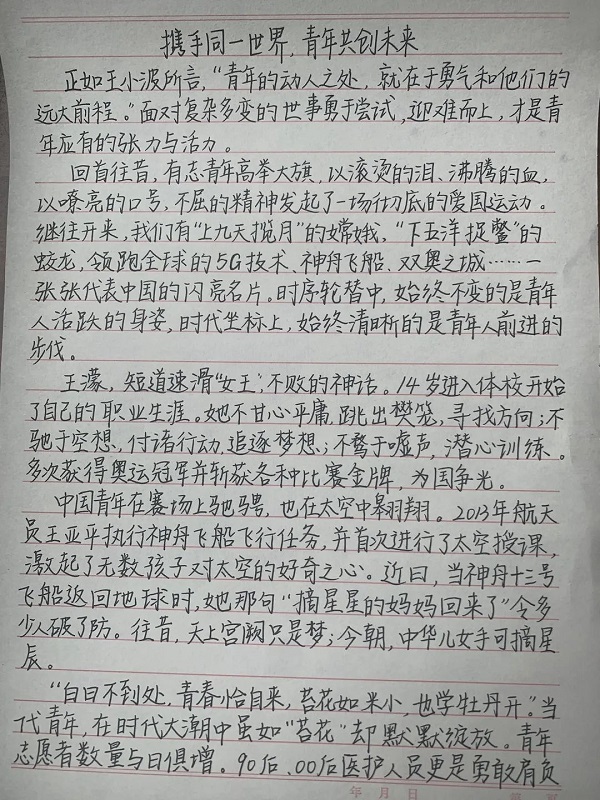 携手同一世界,青年共创未来
正如王小波所言,“青年的动人之处,就在于勇气和他们的
远大前程。”面对复杂多变的世事勇于尝试,迎难而上,才是青
年应有的张力与活力。
回首往昔,有志青年高举大旗,以滚烫的泪、沸腾的血,
以嘹亮的口号,不屈的精神发起了一场彻底的爱国运动。
继往开来,我们有“上九天揽月”的嫦娥,“下五洋捉鳖”的
蛟龙,领跑全球的5G技术、神舟飞船、双奥之城……一
张张代表中国的闪亮名片。时序轮替中,始终不变的是青年
人活跃的身姿,时代坐标上,始终清晰的是青年人前进的
步伐。
王濛,短道速滑“女王”,不败的神话。14岁进入体校开始
了自己的职业生涯。她不甘心平庸,跳出樊笼,寻找方向;不
驰于空想,付诸行动,追逐梦想;不骛于嘘声,潜心训练。
多次获得奥运冠军并斩获各种比赛金牌,为国争光。
中国青年在赛场上驰骋,也在太空中翱翔。2013年航天
员王亚平执行神舟飞船飞行任务,并首次进行了太空授课,
激起了无数孩子对太空的好奇之心。近日,当神舟十三号
飞船返回地球时,她那句“摘星星的妈妈回来了”令多
少人破了防。往昔,天上宫阙只是梦;今朝,中华儿女手可摘星
辰。
“白日不到处,青春恰自来,苔花如米小,也学牡丹开。”当
代青年,在时代大潮中虽如“苔花”却默默绽放。青年
志愿者数量与日俱增。90后、00后医护人员更是勇敢肩负
年 月 日